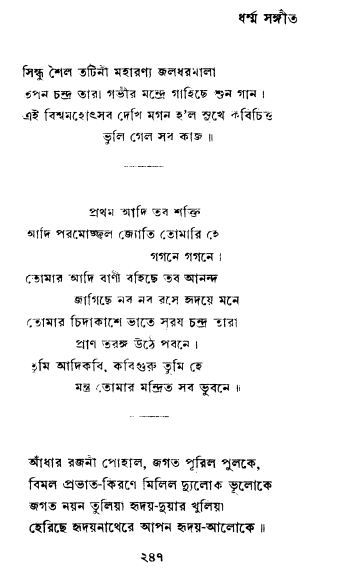 ধর্ম্ম সঙ্গীত
সিন্ধু শৈল তটিনী মহারণ্য জলধরমালা
তপন চন্দ্র তারা গভীর মন্দ্রে গাহিছে শুন গান।
এই বিশ্বমহোৎসব দেখি মগন হ'ল সুখে কবিচিত্ত
ভুলি গেল সব কাজ॥
প্রথম আদি তব শক্তি
আদি পরমোজ্জ্বল জ্যোতি তোমারি হে
গগনে গগনে।
তোমার আদি বাণী বহিছে তব আনন্দ
জাগিছে নব নব রসে হৃদয়ে মনে
তোমার চিদাকাশে ভাতে সূরয চন্দ্র তারা
প্রাণ তরঙ্গ উঠে পবনে।
তুমি আদিকবি, কবিগুরু তুমি হে
মন্ত্র তোমার মন্দ্রিত সব ভুবনে॥
আঁধার রজনী পোহাল, জগত পূরিল পুলকে,
বিমল প্রভাত-কিরণে মিলিল দ্যুলোক ভূলোকে
জগত নয়ন তুলিয়া হৃদয়-দুয়ার খুলিয়া
হেরিছে হৃদয়নাথেরে আপন হৃদয়-আলোকে॥
২৪৭